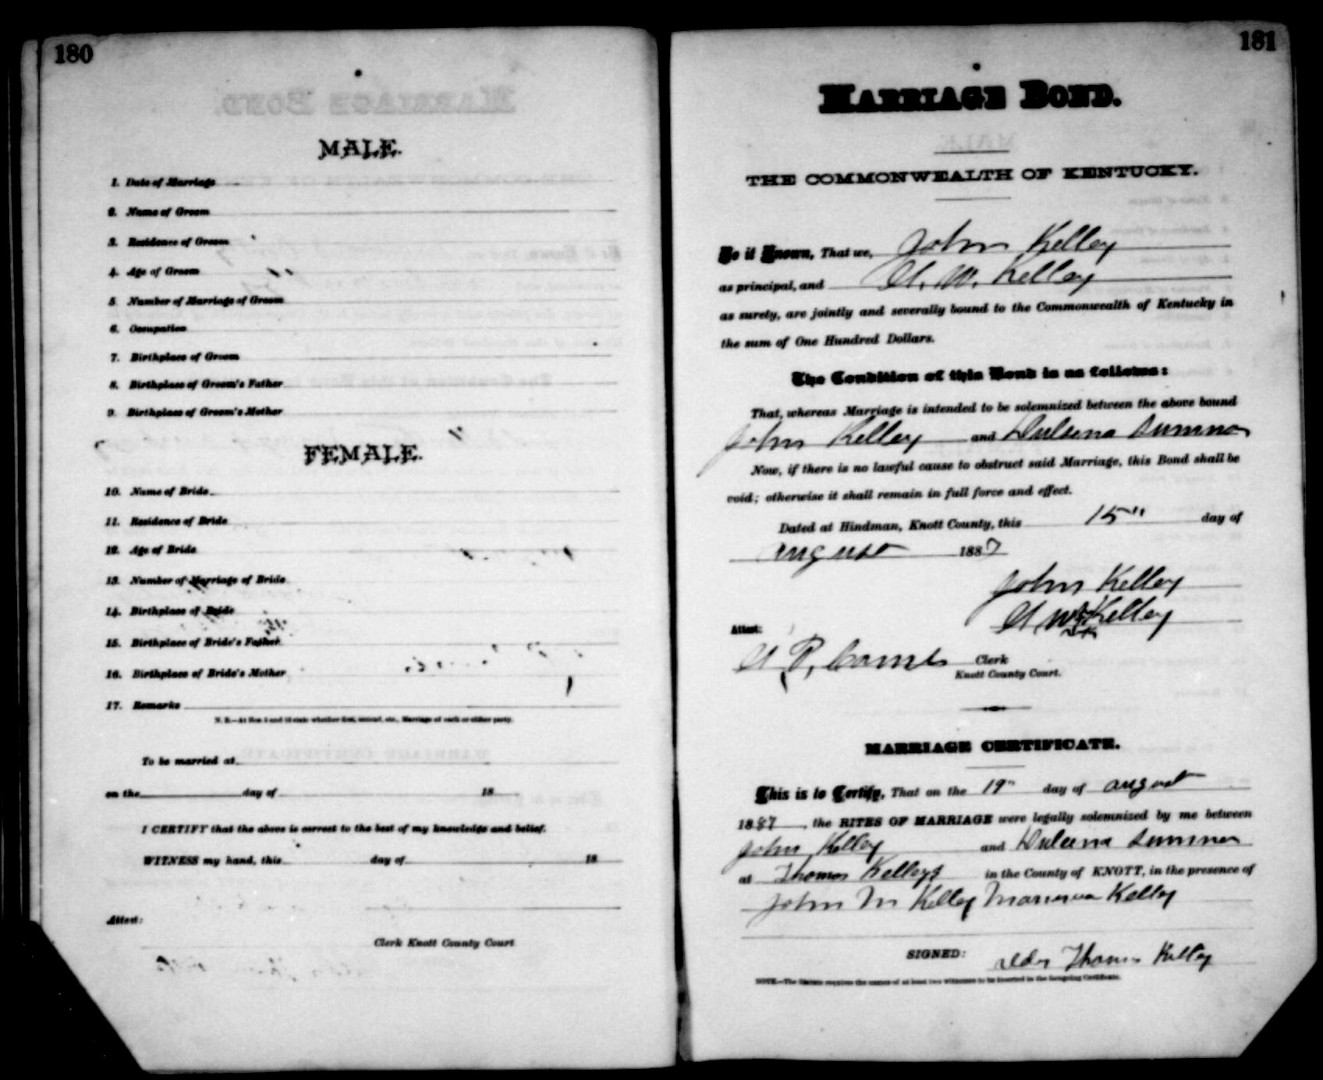 180
MALE.
1. Date of Marriage
2. Name of Groom
3. Residence of Groom
4. Age of Groom
5. Number of Marriage of Groom
6. Occupation
7. Birthplace of Groom
8. Birthplace of Groom's Father
9. Birthplace of Groom's Mother
FEMALE.
10. Name of Bride
11. Residence of Bride
12. Age of Bride
13. Number of Marriage of Bride
14. Birthplace of Bride
15. Birthplace of Bride's Father
16. Birthplace of Bride's Mother
17. Remarks
N. B.—At Nos. 5 and 13 state whether first, second, etc., Marriage of each or either party.
To be married at
on the day of 18
I CERTIFY that the above is correct to the best of my knowledge and belief.
WITNESS my hand, this day of 18
Attest:
Clerk Knott County Court
181
MARRIAGE BOND.
THE COMMONWEALTH OF KENTUCKY.
Be it Known, That we, John Kelley
as principal, and W. Kelley
as surety, are jointly and severally bound to the Commonwealth of Kentucky in
the sum of One Hundred Dollars.
The Condition of this Bond is as follows:
That, whereas Marriage is intended to be solemnized between the above bound
John Kelley and Dulsena Sumner
Now, if there is no lawful cause to obstruct said Marriage, this Bond shall be
void; otherwise it shall remain in full force and effect.
Dated at Hindman, Knott County, this 15" day of
August 1887
John Kelley
W Kelley
Attest:
P, Clerk
Knott County Court.
MARRIAGE CERTIFICATE.
This is to Certify, That on the 19" day of August
1887, the RITES OF MARRIAGE were legally solemnized by me between
John Kelley and Dulcena Sumner
at Thomas Kelleys in the County of KNOTT, in the presence of
John M Kelley Kelley
SIGNED: Elder Thomas Kelley
NOTE.—The Statute requires the names of at least two witnesses to be inserted in the foregoing Certificate.